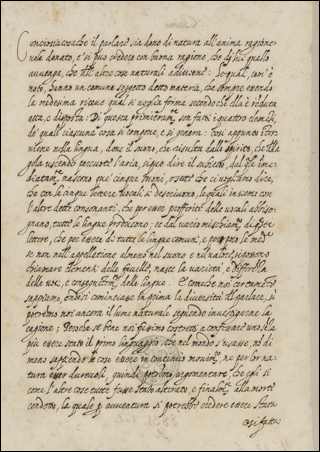 Conciosiacosache il parlare sia dono di natura all'anima ragione-
uole donato, e' si può credere con buona ragione, che di lui quello
auuenga, che dell'altre cose naturali adiuiene: Le quali, com'è
noto, hanno un comune soggetto detto materia, che sempre essendo
la medesima riceue qual si uoglia forma secondo che ella è ridotta
atta, e disposta: Di questa primieram.te son fatti i quattro elementi,
de' quali ciascuna cosa si compone, e si genera: così appunto inter-
uiene nella lingua, doue il suono, che risulta dallo spirito, che
la uscendo percuote l'aria, in uece di subietto, dal q.le imme-
diatam.te nascono que' cinque suoni,
che con le cinque lettere uocali si descriuono, le quali insieme con
l'altre dette consonanti, che per esser profferite delle uocali abbiso-
gnano, tutte le lingue producono: e dal uario mischiam.to di q.ste
lettere, che poi esser di tutte le lingue comuni, e però
se non nell'appellatione almeno nel suono e nel ualore, si possono
chiamare elementi delle fauelle, nasce la uarietà, e differenza
delle uoci, e conseguentem.te delle lingue. E come che noi certamente
sappiamo, onde si cominciasse in prima la diuersità del parlare, si
potremo noi ancora il lume naturale seguendo inuestigarne la
cagione: Perochè se bene noi fussimo costretti a confessare uno solo
più essere stato il primo linguaggio, che nel mondo s'usasse, nò di
meno sappiendo le cose essere in continuo mouim.to, ne per lor na-
tura esser dureuoli, quindi potremo argomentare, che egli si
come l'altre cose tutte fusse stato alterato, e finalm.te alla morte
condotto, la quale p auuentura si potrebbe credere essere stata
così fatta